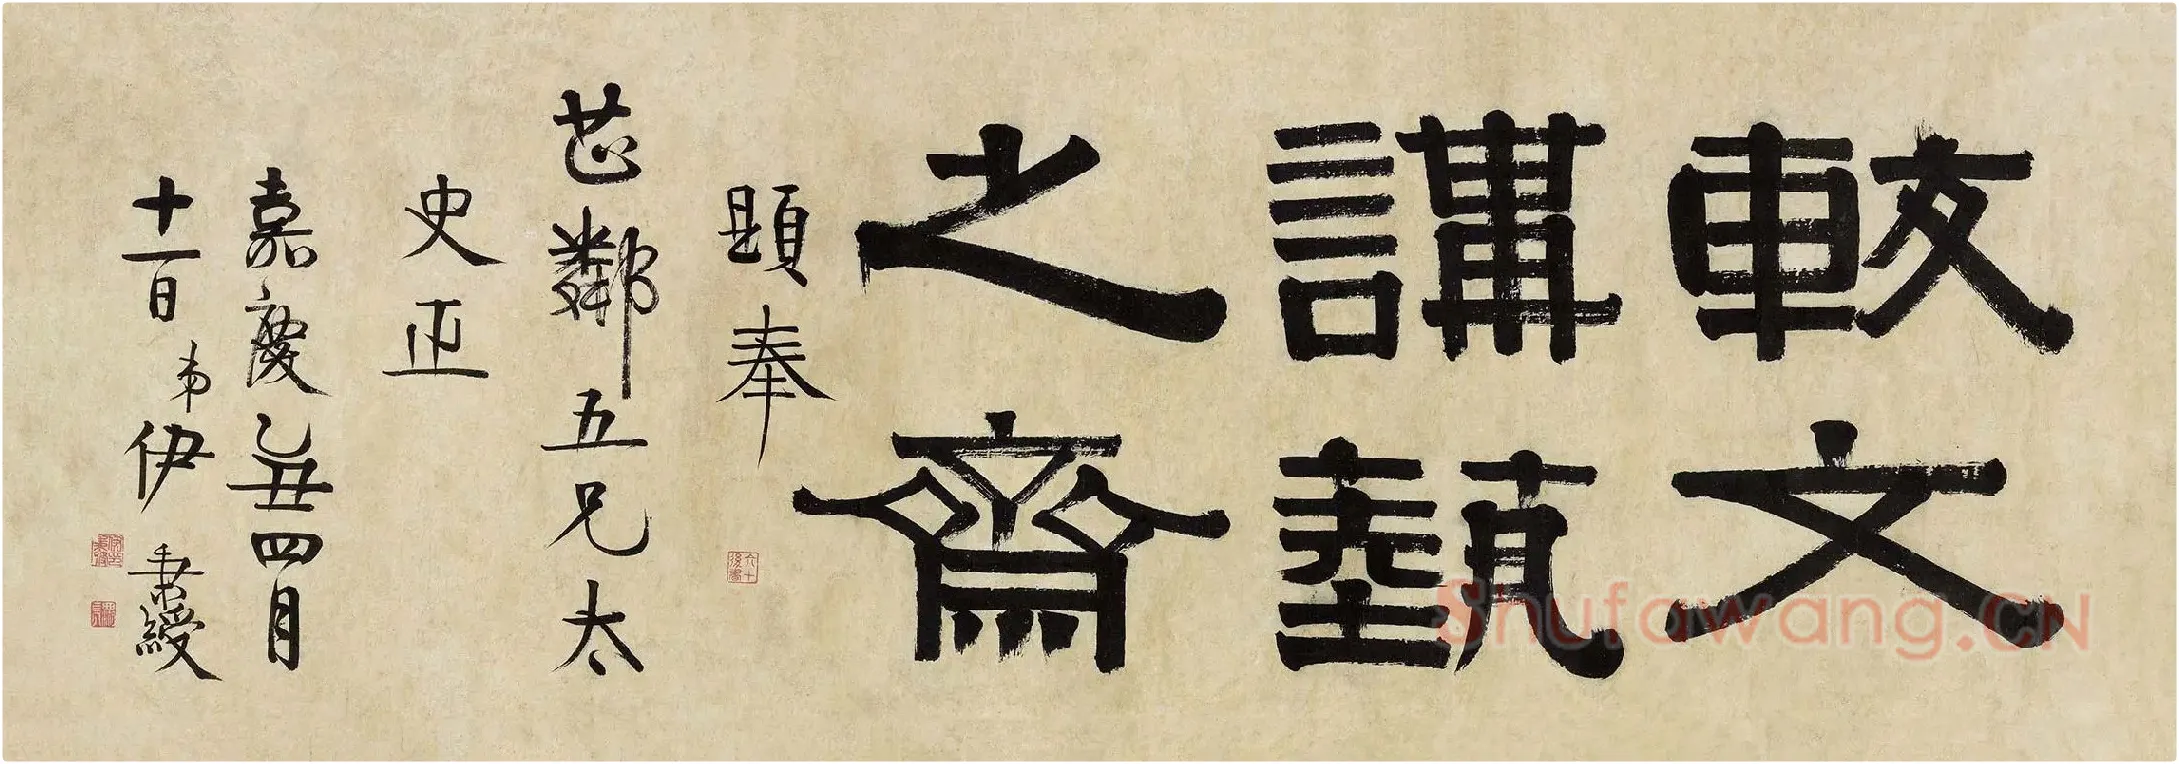 較文
講埶
之齋
題奉
芷鄰五兄太
史正
嘉慶乙丑四月
十一日弟伊秉綬
Shufawang.CN